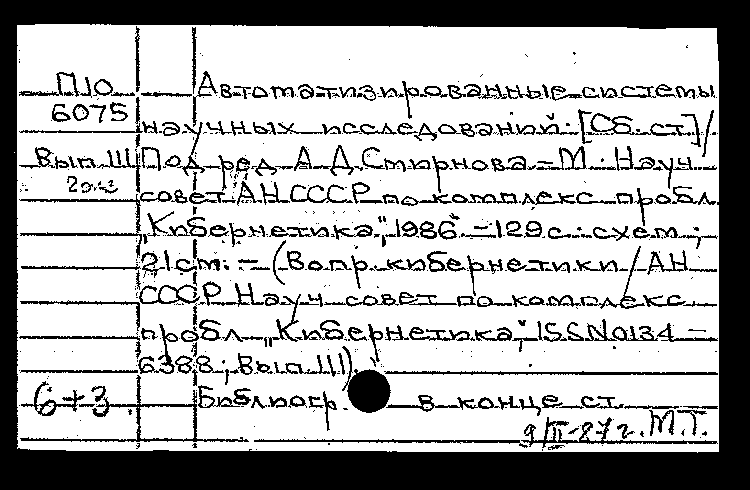 П10 Автоматизированные системы
6075
научных исследований: [Сб. ст.] /
Вып. 111 Под ред. А.Д. Смирнова. – М.: Науч.
совет АН СССР по комплекс. пробл.
2 экз
„Кибернетика“, 1986. – 129 с.: схем.;
21 cm. – (Вопр. кибернетики / АН
СССР. Науч. совет по комплекс.
пробл. „Кибернетика“, ISSN 0134 –
6388; Вып. 111).
6+3. Библиогр. в конце ст.
9/II-87 г. М.Т.